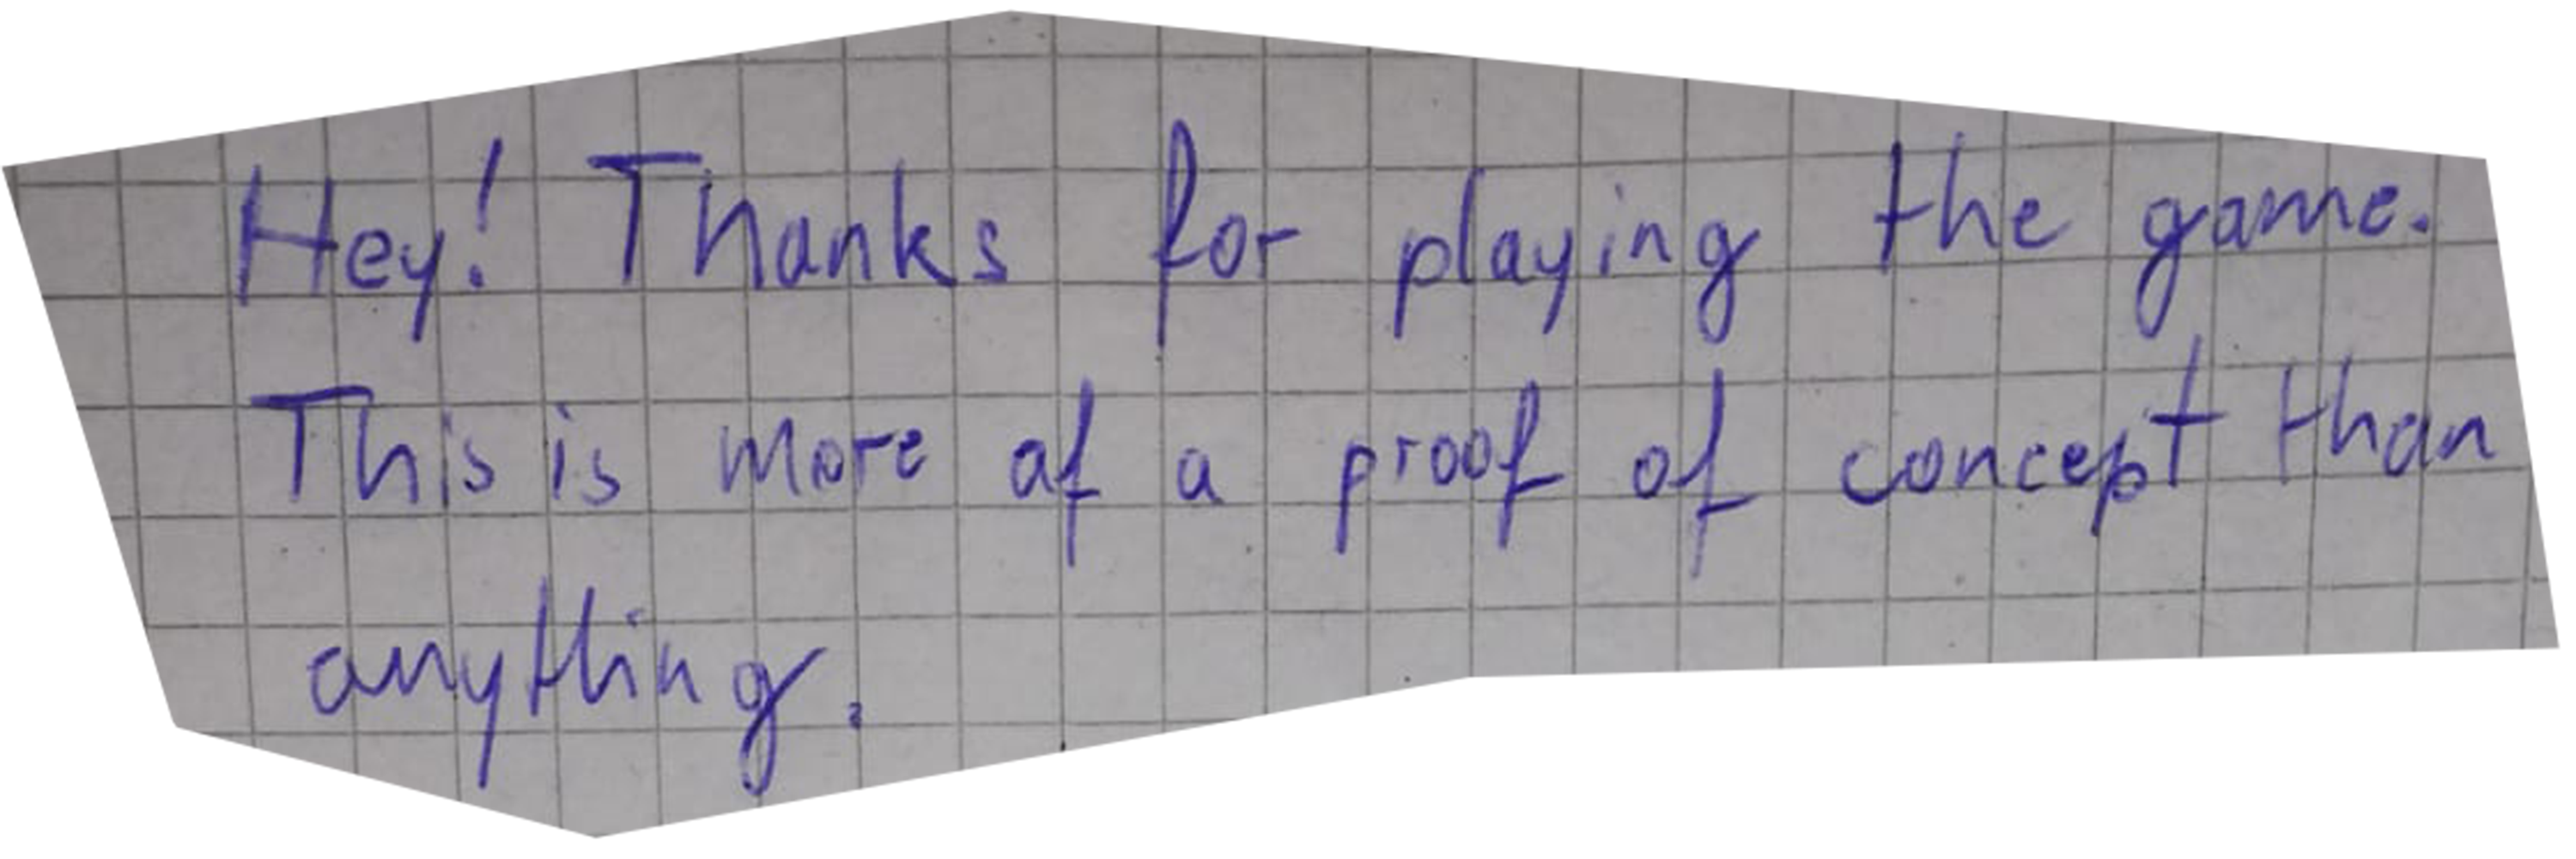 Hey! Thanks for playing the game.
This is more of a proof of concept than
anything.